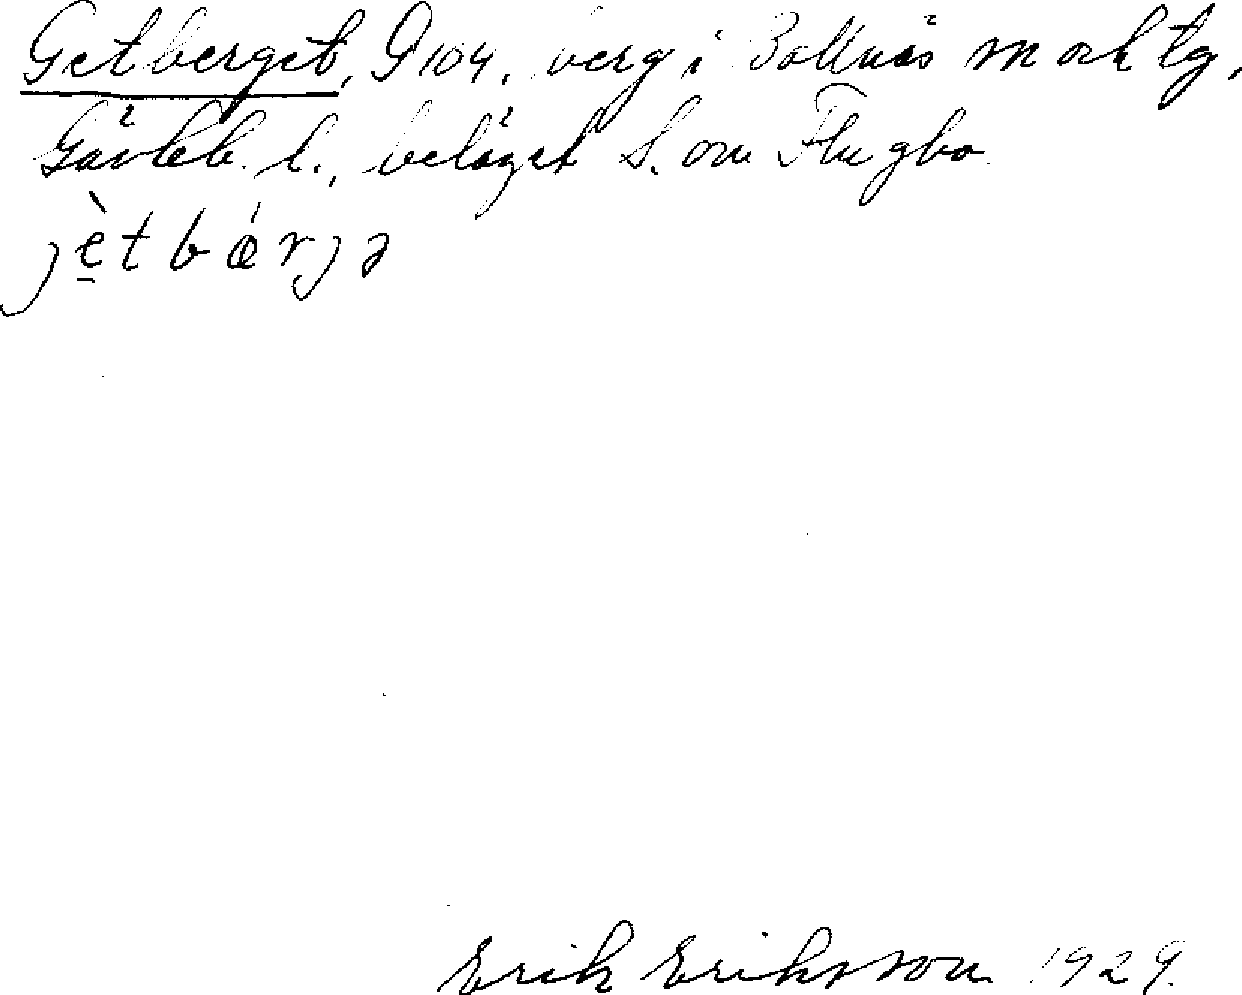 Getberget, G 104, berg i Bollnäs m och tg,
Gävleb. l., beläget S. om Flugbo.
jè̱tbǽrjə
Erik Eriksson 1929.